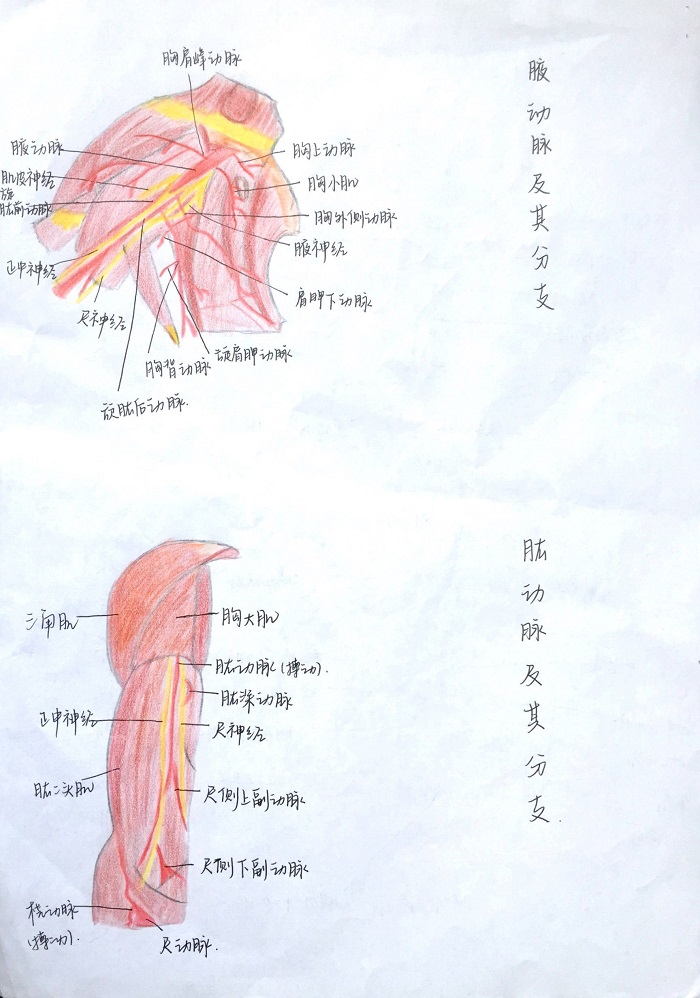 胸肩峰动脉
腋动脉及其分支
腋动脉
胸上动脉
肌皮神经
胸小肌
旋
肱前动脉
胸外侧动脉
腋神经
正中神经
肩胛下动脉
尺神经
胸背动脉
旋肩胛动脉
旋肱后动脉.
肱动脉及其分支.
三角肌
胸大肌
肱动脉(搏动).
肱深动脉
正中神经
尺神经
肱二头肌
尺侧上副动脉
尺侧下副动脉
桡动脉
(搏动).
尺动脉.